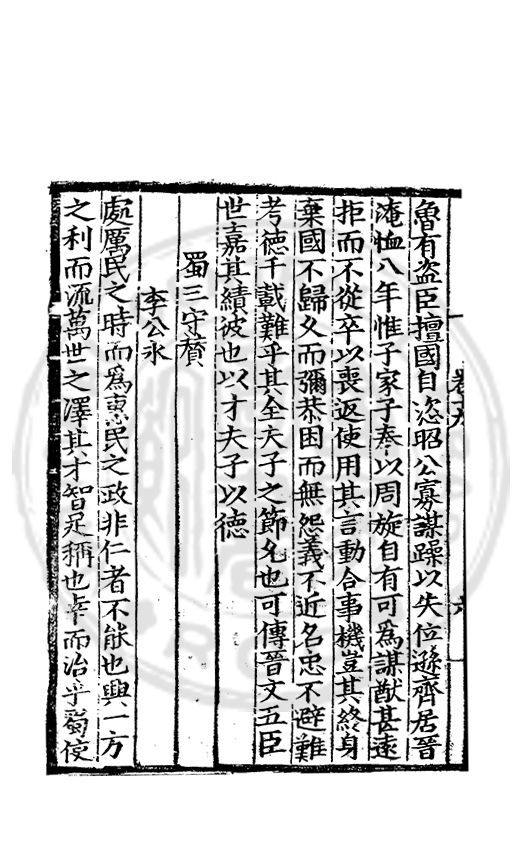 魯有盜臣擅國自恣昭公寡謀躁以失位遜齊居晉
淹恤八年惟子家子奉以周旋自有可為謀猷甚遠
拒而不從卒以喪返使用其言動合事機豈其終身
棄國不歸久而彌恭困而無怨義不近名忠不避難
考德千載難乎其全夫子之節名也可傳晉文五臣
世嘉其績彼也以才夫子以德
蜀三守贊
李公氷
處厲民之時而為惠民之政非仁者不能也興一方
之利而流萬世之澤其才智足稱也
而治乎蜀使